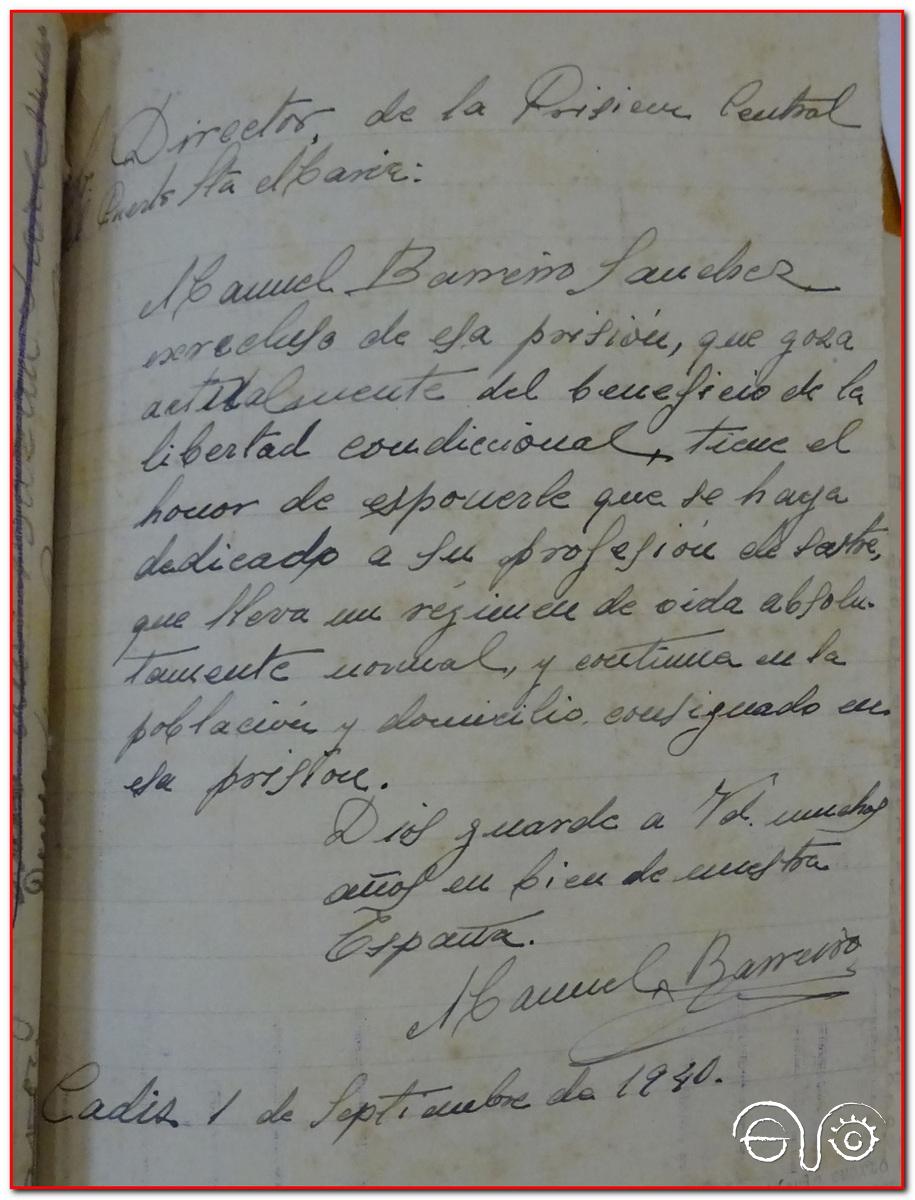 Director, de la Prisieon Central
Puerto Sta Maria:
Manuel Barreiro Sanchez
exrecluso de esa prisión, que goza
actualmente del beneficio de la
libertad condiccional, tiene el
honor de esponerle que se haya
dedicado a su profesión de sastre,
que lleva un régimen de vida absolu-
tamente normal, y continua en la
población y domicilio consignado en
esa prision.
Dios guarde a Vd. muchos
años en bien de nuestra
España.
Manuel Barreiro
Cadis 1 de Septiembre de 1940.